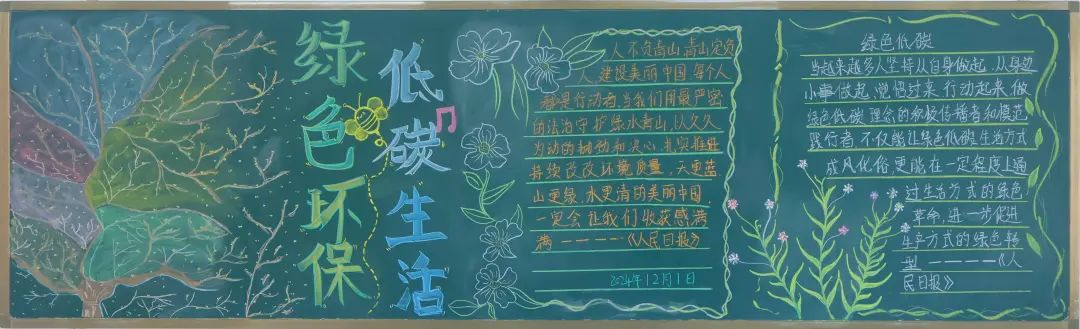 绿色环保
低碳生活
人不负青山,青山定负
人,建设美丽中国,每个人
都是行动者,当我们用最严密
的法治守护绿水青山,以久久
为动的韧劲和决心,扎实推进
持续改改环境质量,天更蓝、
山更绿、水更清的美丽中国
一定会让我们收获感满
满————《人民日报》
2024年12月1日
绿色低碳
当越来越多人坚持从自身做起,从身边
小事做起,觉悟过来,行动起来,做
绿色低碳理念的积极传播者和模范
践行者,不仅能让绿色低碳生活方式
成风化俗,更能在一定程度上通
过生活方式的绿色
革命,进一步促进
生产方式的绿色转
型————《人
民日报》